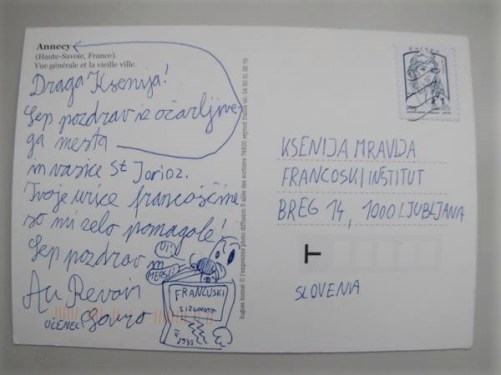 Annecy
(Haute-Savoie, France).
Vue générale et la vieille ville.
Draga Ksenija!
Lep pozdrav iz očarljive
ga mesta
in vasice St Jorioz.
Tvoje urice francoščine
so mi zelo pomagale!
Lep pozdrav
Au Revoir
UČENEC
OUI
MERSI
FRANCUSKI
KSENIJA MRAVLJA
FRANCOSKI INSTITUT
BREG 14, 1000 LJUBLJANA
T
SLOVENIA